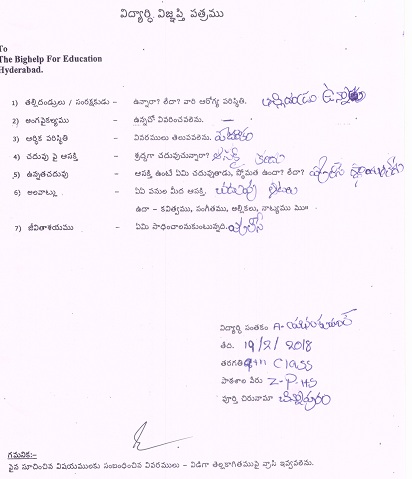 విద్యార్థి విజ్ఞప్తి పత్రము
To
The Bighelp For Education
Hyderabad.
1) తల్లిదండ్రులు / సంరక్షకుడు – ఉన్నారా? లేదా? వారి ఆరోగ్య పరిస్థితి.
2) అంగవైకల్యము – ఉన్నచో వివరించవలెను.
3) ఆర్థిక పరిస్థితి – వివరములు తెలుపవలెను. పేదరికం
4) చదువు పై ఆసక్తి – శ్రద్ధగా చదువుచున్నారా? ఆసక్తి కలదు
5) ఉన్నతచదువు – ఆసక్తి ఉంటే ఏమి చదువుతాడు, స్తోమత ఉందా? లేదా?
6) అలవాట్లు – ఏఏ పనుల మీద ఆసక్తి. చదువు ఆటలు
ఉదా – కవిత్వము, సంగీతము, అల్లికలు, నాట్యము మి॥
7) జీవితాశయము – ఏమి సాధించాలనుకుంటున్నది. పోలీస్
విద్యార్థి సంతకం A-
తేది. 19/2/2018
తరగతి 9th Class
పాఠశాల పేరు Z-P-HS
పూర్తి చిరునామా
గమనిక:-
పైన సూచించిన విషయములకు సంబంధించిన వివరములు – విడిగా తెల్లకాగితముపై వ్రాసి ఇవ్వవలెను.